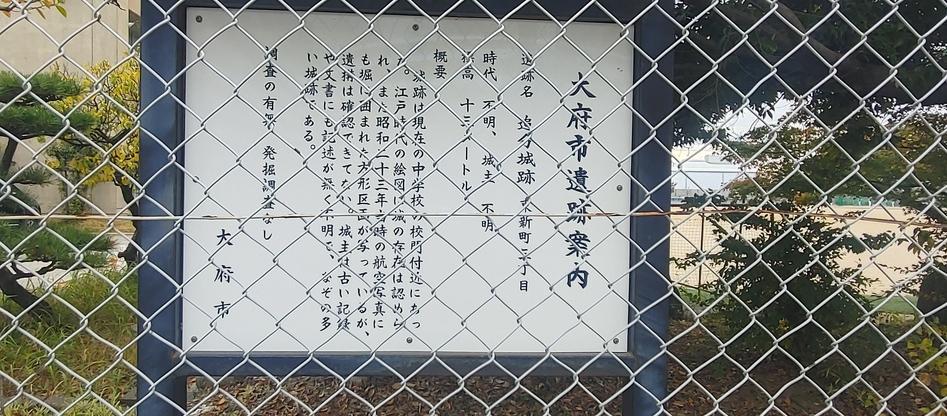 大府市遺跡案内
遺跡名 追分城跡 新町二丁目
時代 不明、城主 不明
標高 十三メートル
概要
城跡は現在の中学校の校門付近にあっ
た。江戸時代の絵図に城の存在は認めら
れ、また昭和二十三年当時の航空写真に
も堀に囲まれた方形区画が写っているが、
遺構は確認できてない。城主は古い記録
や文書にも記述が無く不明で、なぞの多
い城跡である。
調査の有無 発掘調査なし
大府市